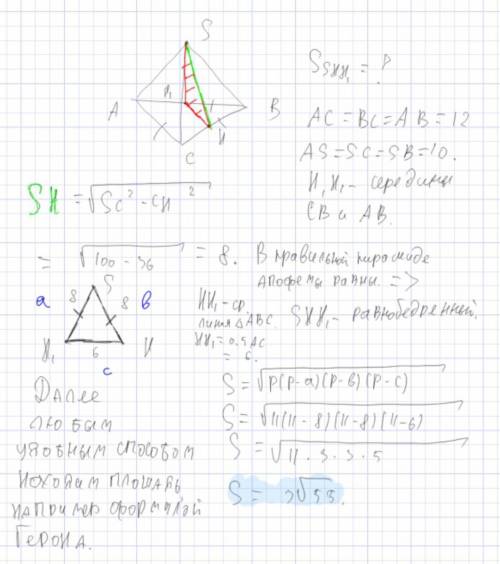 S
H₁
A
B
H
C
S_SHH₁ = ?
AC = BC = AB = 12
AS = SC = SB = 10.
H, H₁ - середины
CB и AB.
SH = √SC² - CH²
= √100 - 36 = 8.
В правильной пирамиде
апофемы равны =>
SHH₁ - равнобедренный.
S
a 8 8 b
H₁ 6 H
c
HH₁ - ср.
линия △ABC.
HH₁ = 0.5AC
= 6.
Далее
любым
удобным способом
находим площадь
например формулой
Герона.
S = √P(P-a)(P-b)(P-c)
S = √11(11-8)(11-8)(11-6)
S = √11 · 3 · 3 · 5
S = 3√55.